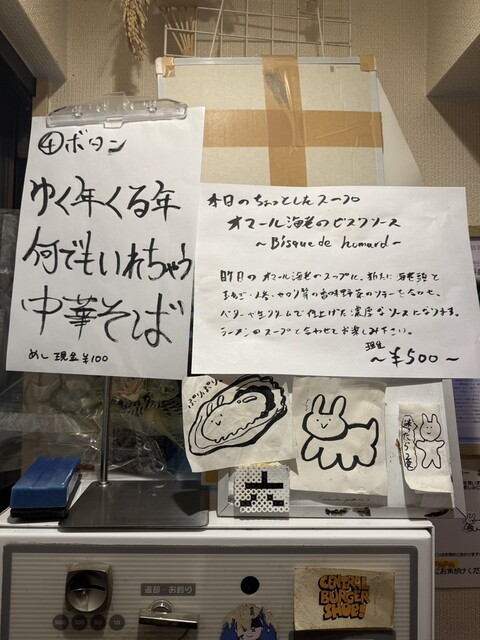 ④ボタン
ゆく年くる年
何でもいれちゃう
中華そば
めし 現金 ¥100
本日のちょっとしたスープ
オマール海老のビスクソース
～Bisque de homard～
昨日のオマール海老のスープに、新たに海老頭と
玉ねぎ・人参・セロリ等の香味野菜のソテーを合わせ、
バターや生クリームで仕上げた濃厚なソースになります。
ラーメンのスープと合わせてお楽しみ下さい。
現金
～¥500～
ぷりぷり
返却・お釣り
CENTRAL
BURGER
SHOP!